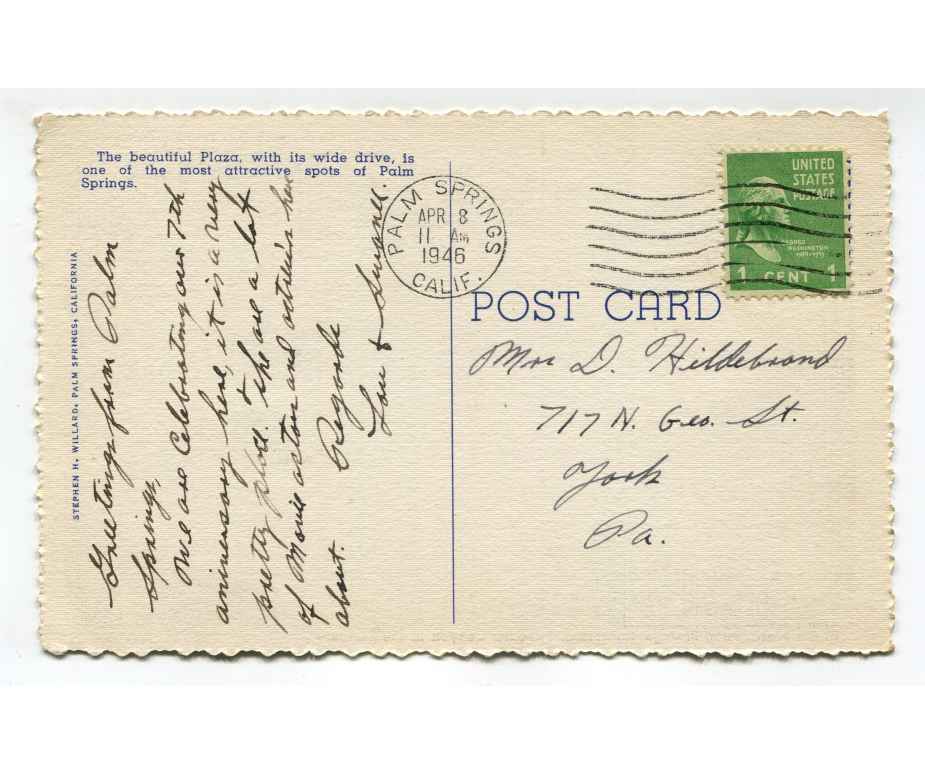 The beautiful Plaza, with its wide drive, is
one of the most attractive spots of Palm
Springs.
STEPHEN H. WILLARD, PALM SPRINGS, CALIFORNIA
Greetings from Palm
Springs,
We are Celebrating our 7th
anniversary here, it is a very
pretty place. & there are a lot
of Movie actors and actress here
about.
Regards
Lou &
PALM SPRINGS
APR 8
11 AM
1946
CALIF.
UNITED
STATES
POSTAGE
GEORGE
WASHINGTON
1789-1797
1 CENT 1
POST CARD
Mrs D. Hildebrand
717 N. Geo. St.
York
Pa.